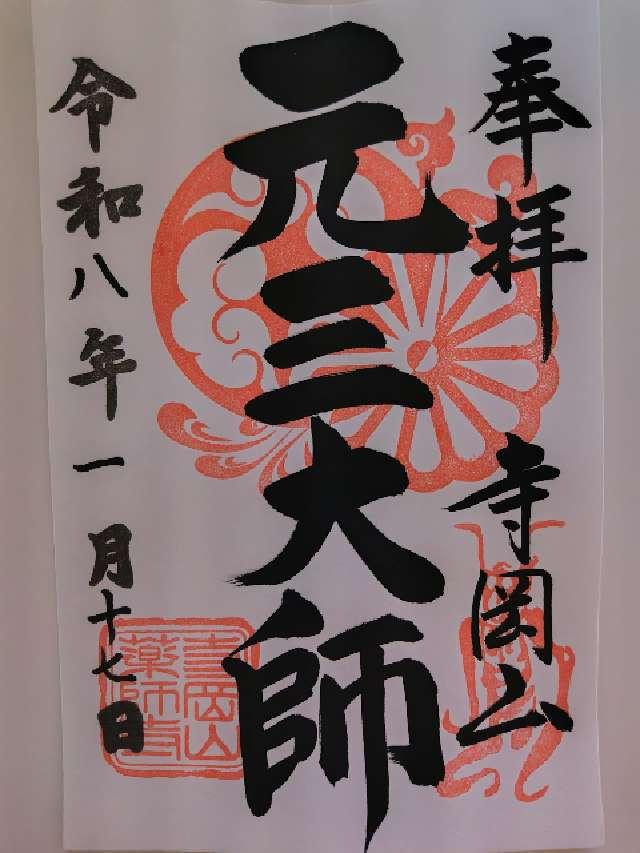 奉拝
寺岡山
元三大師
令和八年一月十七日
寺岡山
薬師寺